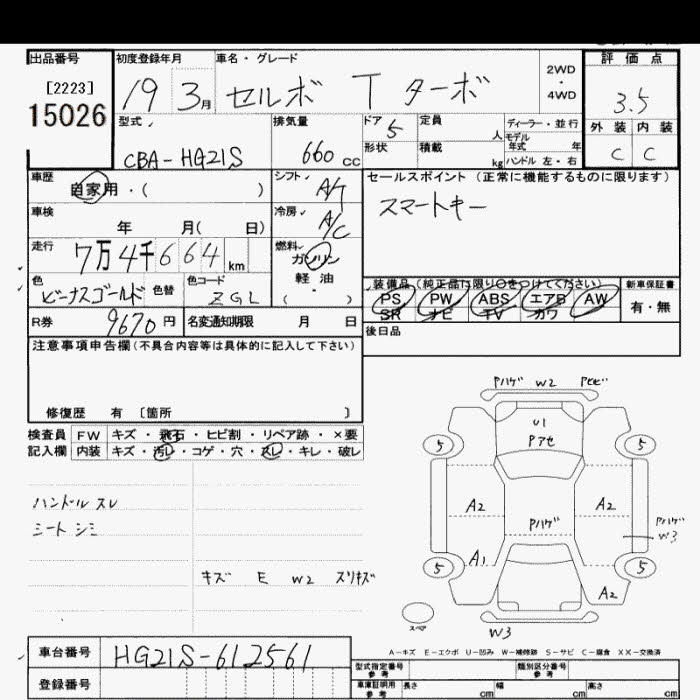 出品番号 初度登録年月 車名・グレード 評価点
[2223]
15026
19 3月 セルボ T ターボ 2WD・4WD 3.5
型式 排気量 ドア 5 定員 人 ディーラー・並行 外装 内装
モデル
CBA-HG21S 660cc 形状 積載 kg 年式 年 C C
ハンドル 左・右
車歴 自家用・( ) シフト A/T セールスポイント (正常に機能するものに限ります)
スマートキー
車検 年 月( 日) 冷房 A/C
走行 7万4千664km 燃料 ガソリン
軽油
( )
色 ビーナスゴールド 色替 色コード ZGL
装備品 (純正品に限り○をつけてください) 新車保証書
PS PW ABS エアB AW 有・無
SR ナビ TV カワ
R券 9670円 名変通知期限 月 日 後日品
注意事項申告欄 (不具合内容等は具体的に記入して下さい)
修復歴 有 [箇所 ]
検査員 FW キズ・飛石・ヒビ割・リペア跡・×要
記入欄 内装 キズ・汚レ・コゲ・穴・スレ・キレ・破レ
ハンドル スレ
シート シミ
キズ E W2 スリキズ
Pハゲ W2 Pヒビ
U1
Pアセ
5 5
A2 A2
Pハゲ Pハゲ
W3
A1
5 5
A2
スペア
W3
A-キズ E-エクボ U-凹み W-補修跡 S-サビ C-腐食 XX-交換済
車台番号 HG21S-612561
型式指定番号 参考 類別区分番号 参考
登録番号 車庫証明用 参考 長さ cm 幅 cm 高さ cm